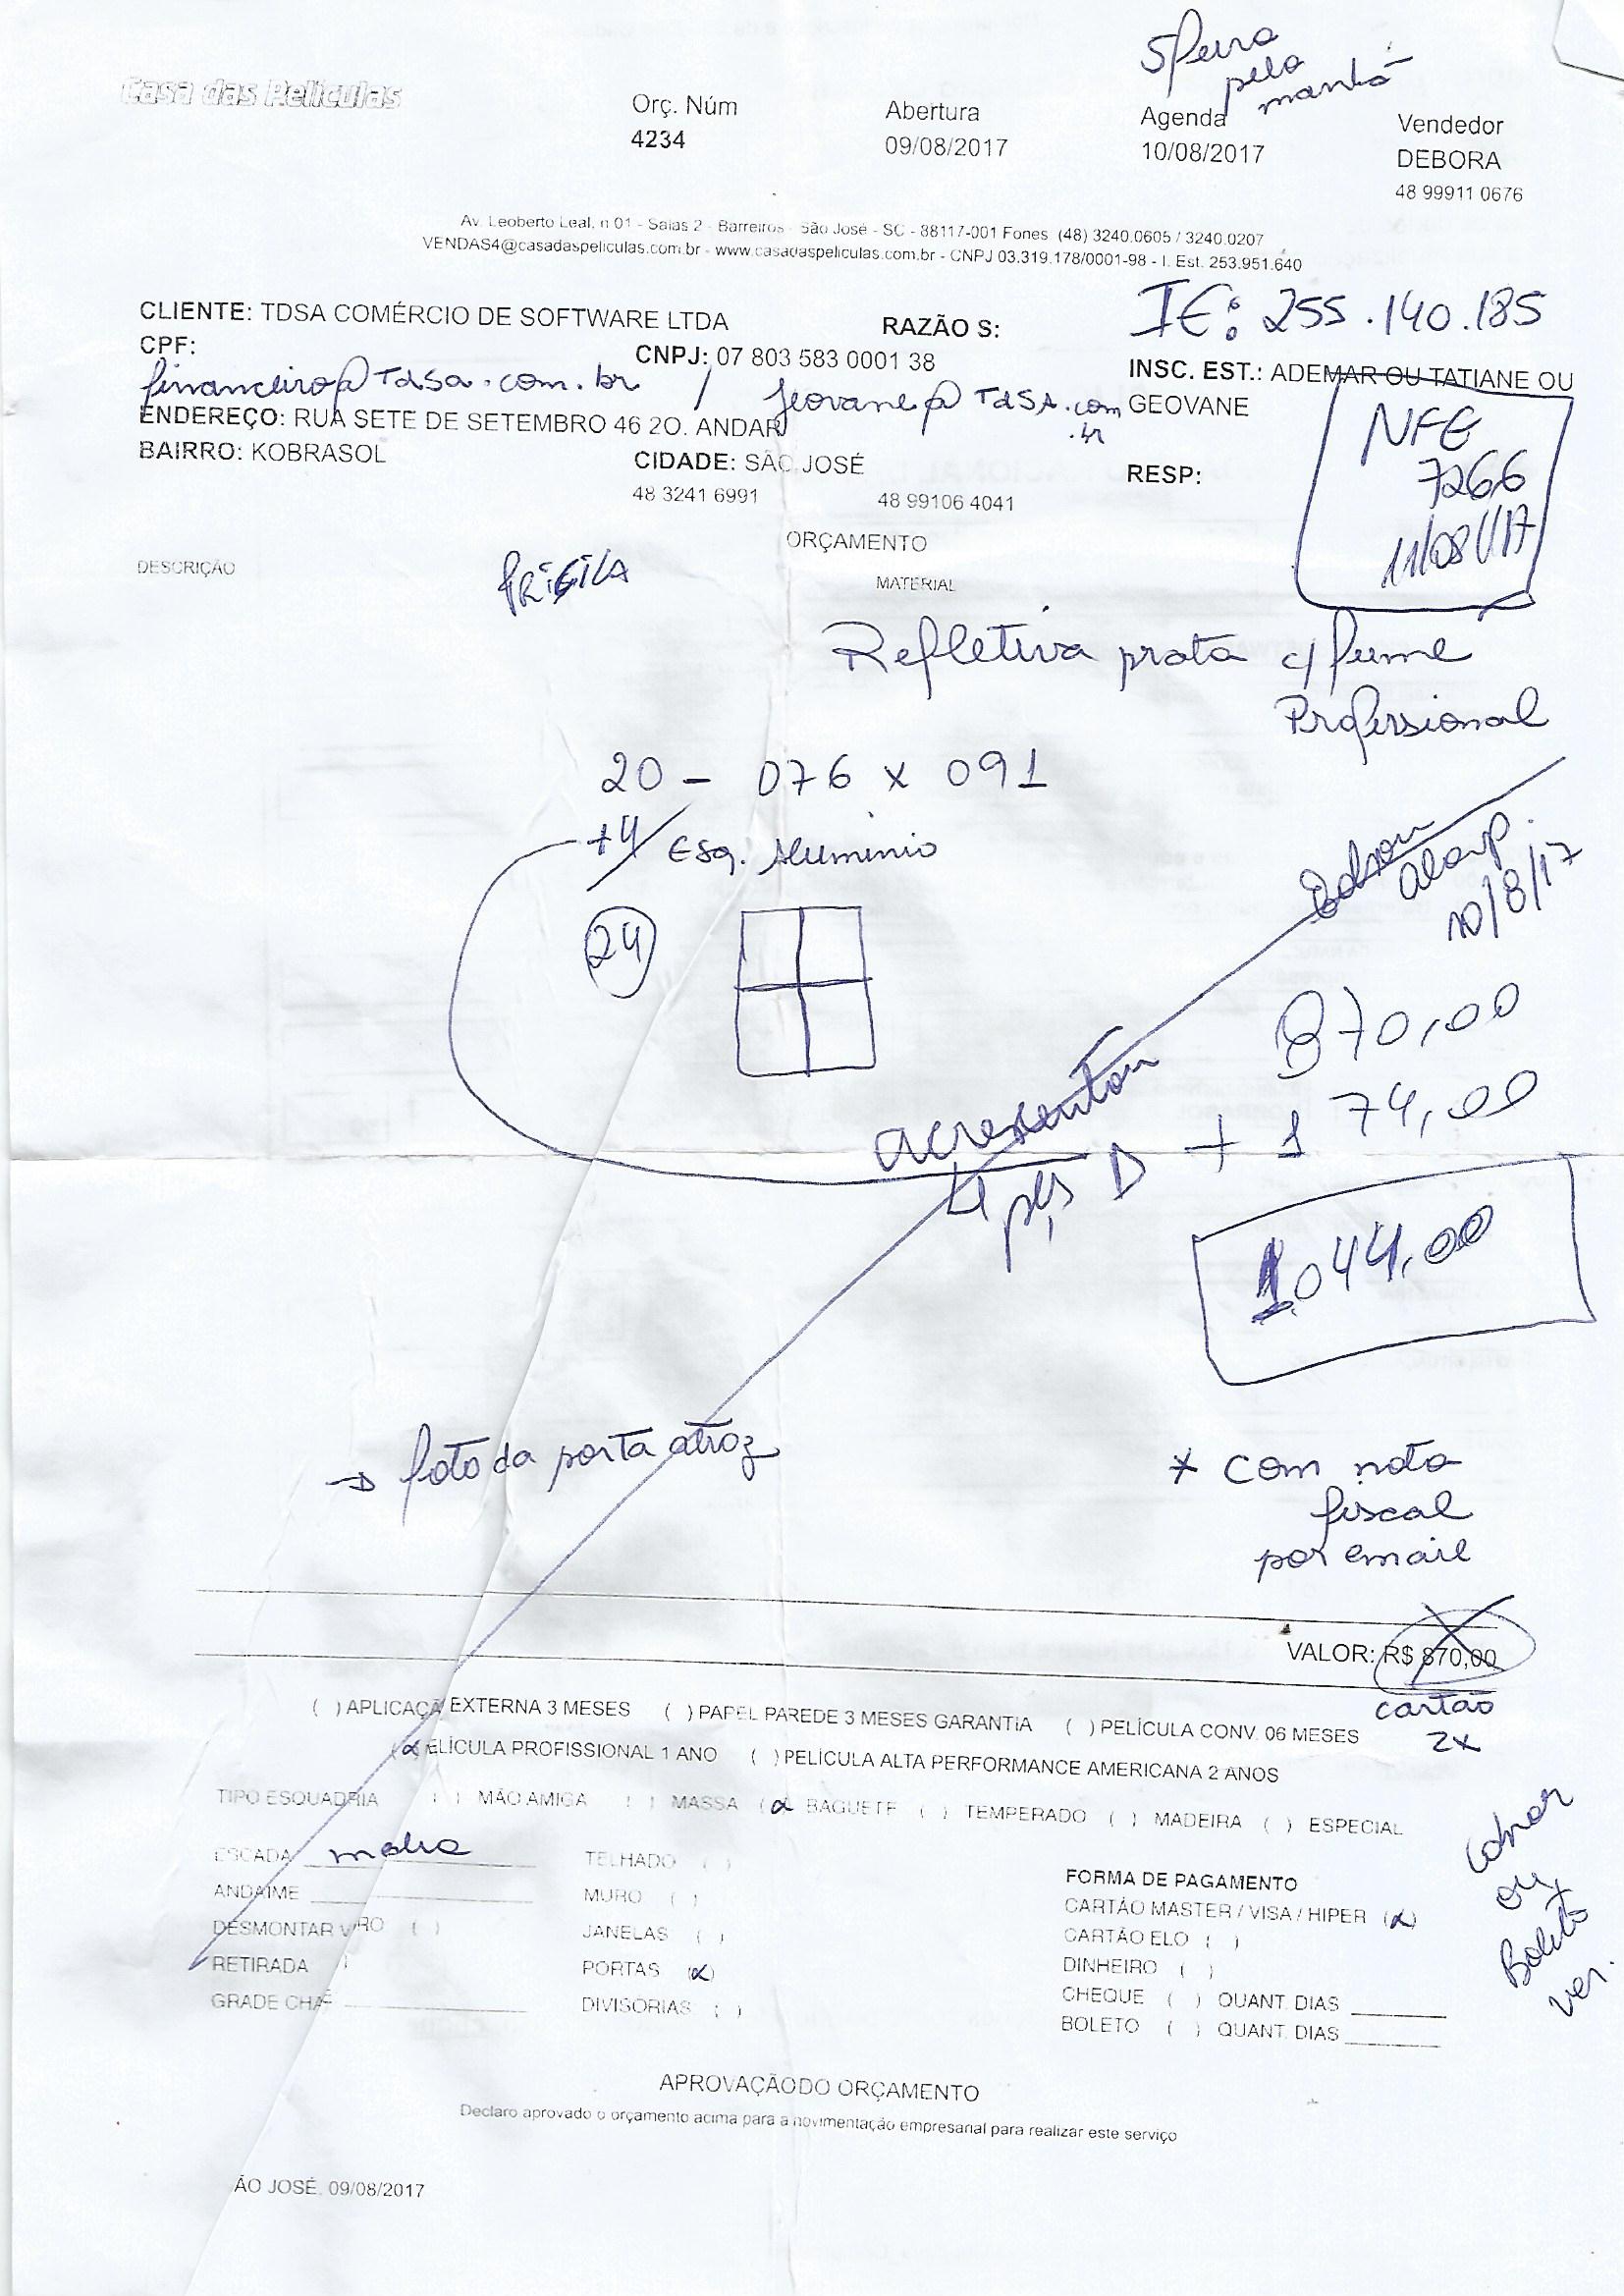 5ª feira
pela
manhã
Casa das Películas
Orç. Núm
4234
Abertura
09/08/2017
Agenda
10/08/2017
Vendedor
DEBORA
48 99911 0676
Av. Leoberto Leal, n 01 - Salas 2 - Barreiros - São José - SC - 88117-001 Fones (48) 3240.0605 / 3240.0207
VENDAS4@casadaspeliculas.com.br - www.casadaspeliculas.com.br - CNPJ 03.319.178/0001-98 - I. Est. 253.951.640
IE: 255.140.185
CLIENTE: TDSA COMÉRCIO DE SOFTWARE LTDA
RAZÃO S:
CPF:
CNPJ: 07 803 583 0001 38
INSC. EST.: ADEMAR OU TATIANE OU
GEOVANE
financeiro@Tdsa.com.br / geovane@TdSA.com
.br
ENDEREÇO: RUA SETE DE SETEMBRO 46 2O. ANDAR
BAIRRO: KOBRASOL
CIDADE: SÃO JOSÉ
RESP:
48 3241 6991
48 99106 4041
NFE
7266
11/08/17
ORÇAMENTO
DESCRIÇÃO
MATERIAL
Refletiva prata c/ fumê
Profissional
20 - 076 x 091
+4 Esq. Aluminio
24
10/8/17
870,00
acrescentou
4 pçs
+ 174,00
1.044,00
→ foto da porta atroz
* com nota
fiscal
por email
VALOR: R$ 870,00
cartão
2x
( ) APLICAÇÃ EXTERNA 3 MESES ( ) PAPEL PAREDE 3 MESES GARANTIA ( ) PELÍCULA CONV. 06 MESES
(x) ELÍCULA PROFISSIONAL 1 ANO ( ) PELÍCULA ALTA PERFORMANCE AMERICANA 2 ANOS
TIPO ESQUADRIA ( ) MÃO AMIGA ( ) MASSA (x) BAGUETE ( ) TEMPERADO ( ) MADEIRA ( ) ESPECIAL
ESCADA
TELHADO ( )
ANDAIME
MURO ( )
DESMONTAR VIRO ( )
JANELAS ( )
RETIRADA
PORTAS (x)
GRADE CHAE
DIVISÓRIAS ( )
FORMA DE PAGAMENTO
CARTÃO MASTER / VISA / HIPER (x)
CARTÃO ELO ( )
DINHEIRO ( )
CHEQUE ( ) QUANT. DIAS
BOLETO ( ) QUANT. DIAS
cobrar
ou
Boleto
ver.
APROVAÇÃODO ORÇAMENTO
Declaro aprovado o orçamento acima para a novimentação empresarial para realizar este serviço
ÃO JOSÉ, 09/08/2017